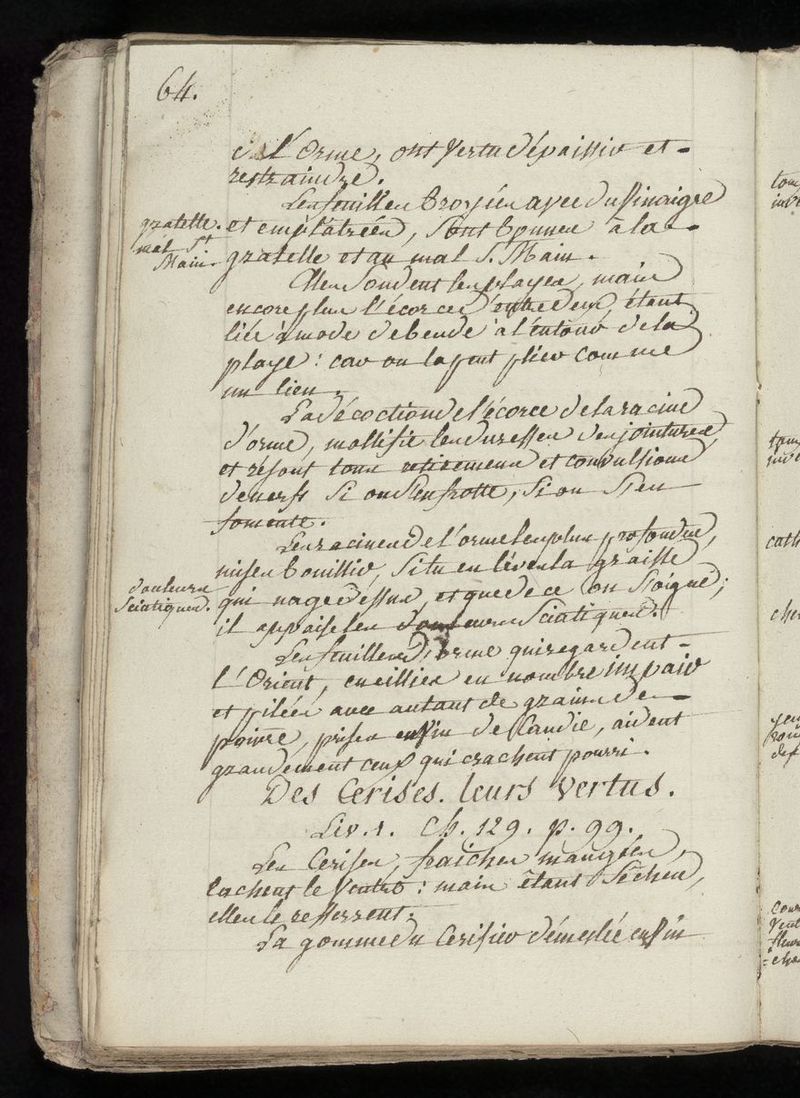 64.
de l'Orme, ont vertu d'épaissir et
restraindre.
Les feuilles broyées avec du Vinaigre
gratelle. et emplâtrées, sont bonnes à la
mal St Main. gratelle et au mal S. Main.
Elles soudent les playes, mais
encore plus l'écorce d'entre deux étant
liée à mode de bende à l'entour de la
playe: car on la peut plier comme
un lien.
La décoction de l'écorce de la racine
d'orme, mollifie les duresses des jointures,
et résout tous retiremens et convulsions
de nerfs si on s'en frotte, si on s'en
fomente.
Les racines de l'orme les plus profondes,
mises bouillir, si tu en lèves la graisse
douleurs Sciatiques. qui nage dessus, et que de ce on s'oigne;
il appaise les douleurs Sciatiques.
Les feuilles d'orme qui regardent
l'Orient, cueillies en nombre impair
et pilées avec autant de grains de
poivre, prises en vin de Candie, aident
grandement ceux qui crachent pourri.
Des Cerises. leurs vertus.
Liv. 1. Ch. 129. p. 99.
Les Cerises, fraiches mangées,
lachent le Ventre: mais étant Séches,
elles le resserrent.
La gomme du Cerisier démeslée en vin